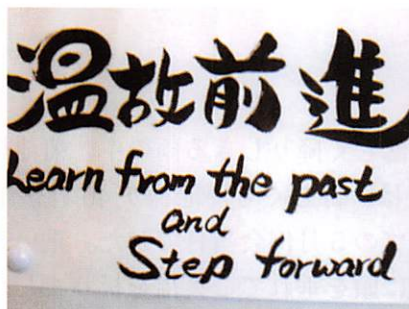 温故前進
Learn from the past
and
Step forward